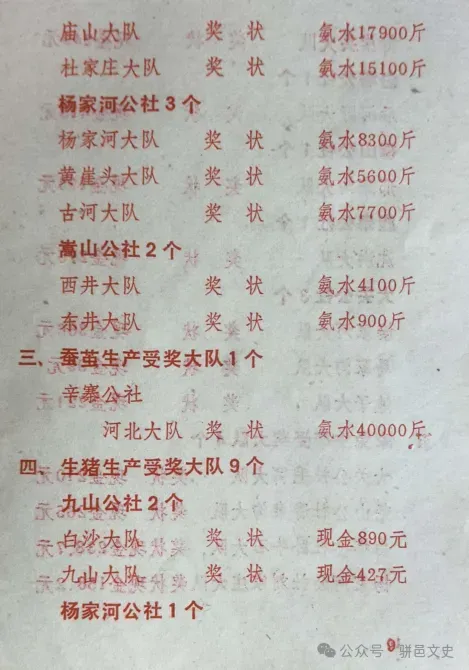 庙山大队 奖状 氨水17900斤
杜家庄大队 奖状 氨水15100斤
杨家河公社3个
杨家河大队 奖状 氨水8300斤
黄崖头大队 奖状 氨水5600斤
古河大队 奖状 氨水7700斤
嵩山公社2个
西井大队 奖状 氨水4100斤
东井大队 奖状 氨水900斤
三、蚕茧生产受奖大队1个
辛寨公社
河北大队 奖状 氨水40000斤
四、生猪生产受奖大队9个
九山公社2个
白沙大队 奖状 现金890元
九山大队 奖状 现金427元
杨家河公社1个
9
公众号·骈邑文史